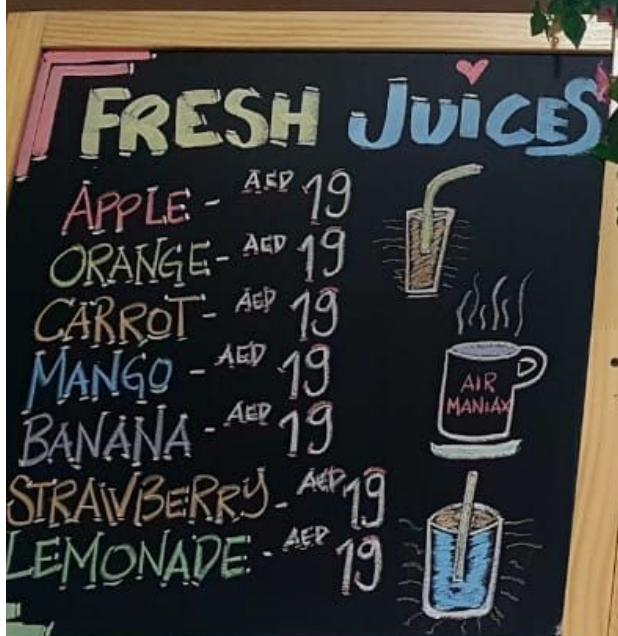 FRESH JUICES
APPLE - AED 19
ORANGE - AED 19
CARROT - AED 19
MANGO - AED 19
BANANA - AED 19
STRAWBERRY - AED 19
LEMONADE - AED 19
AIR
MANIAX